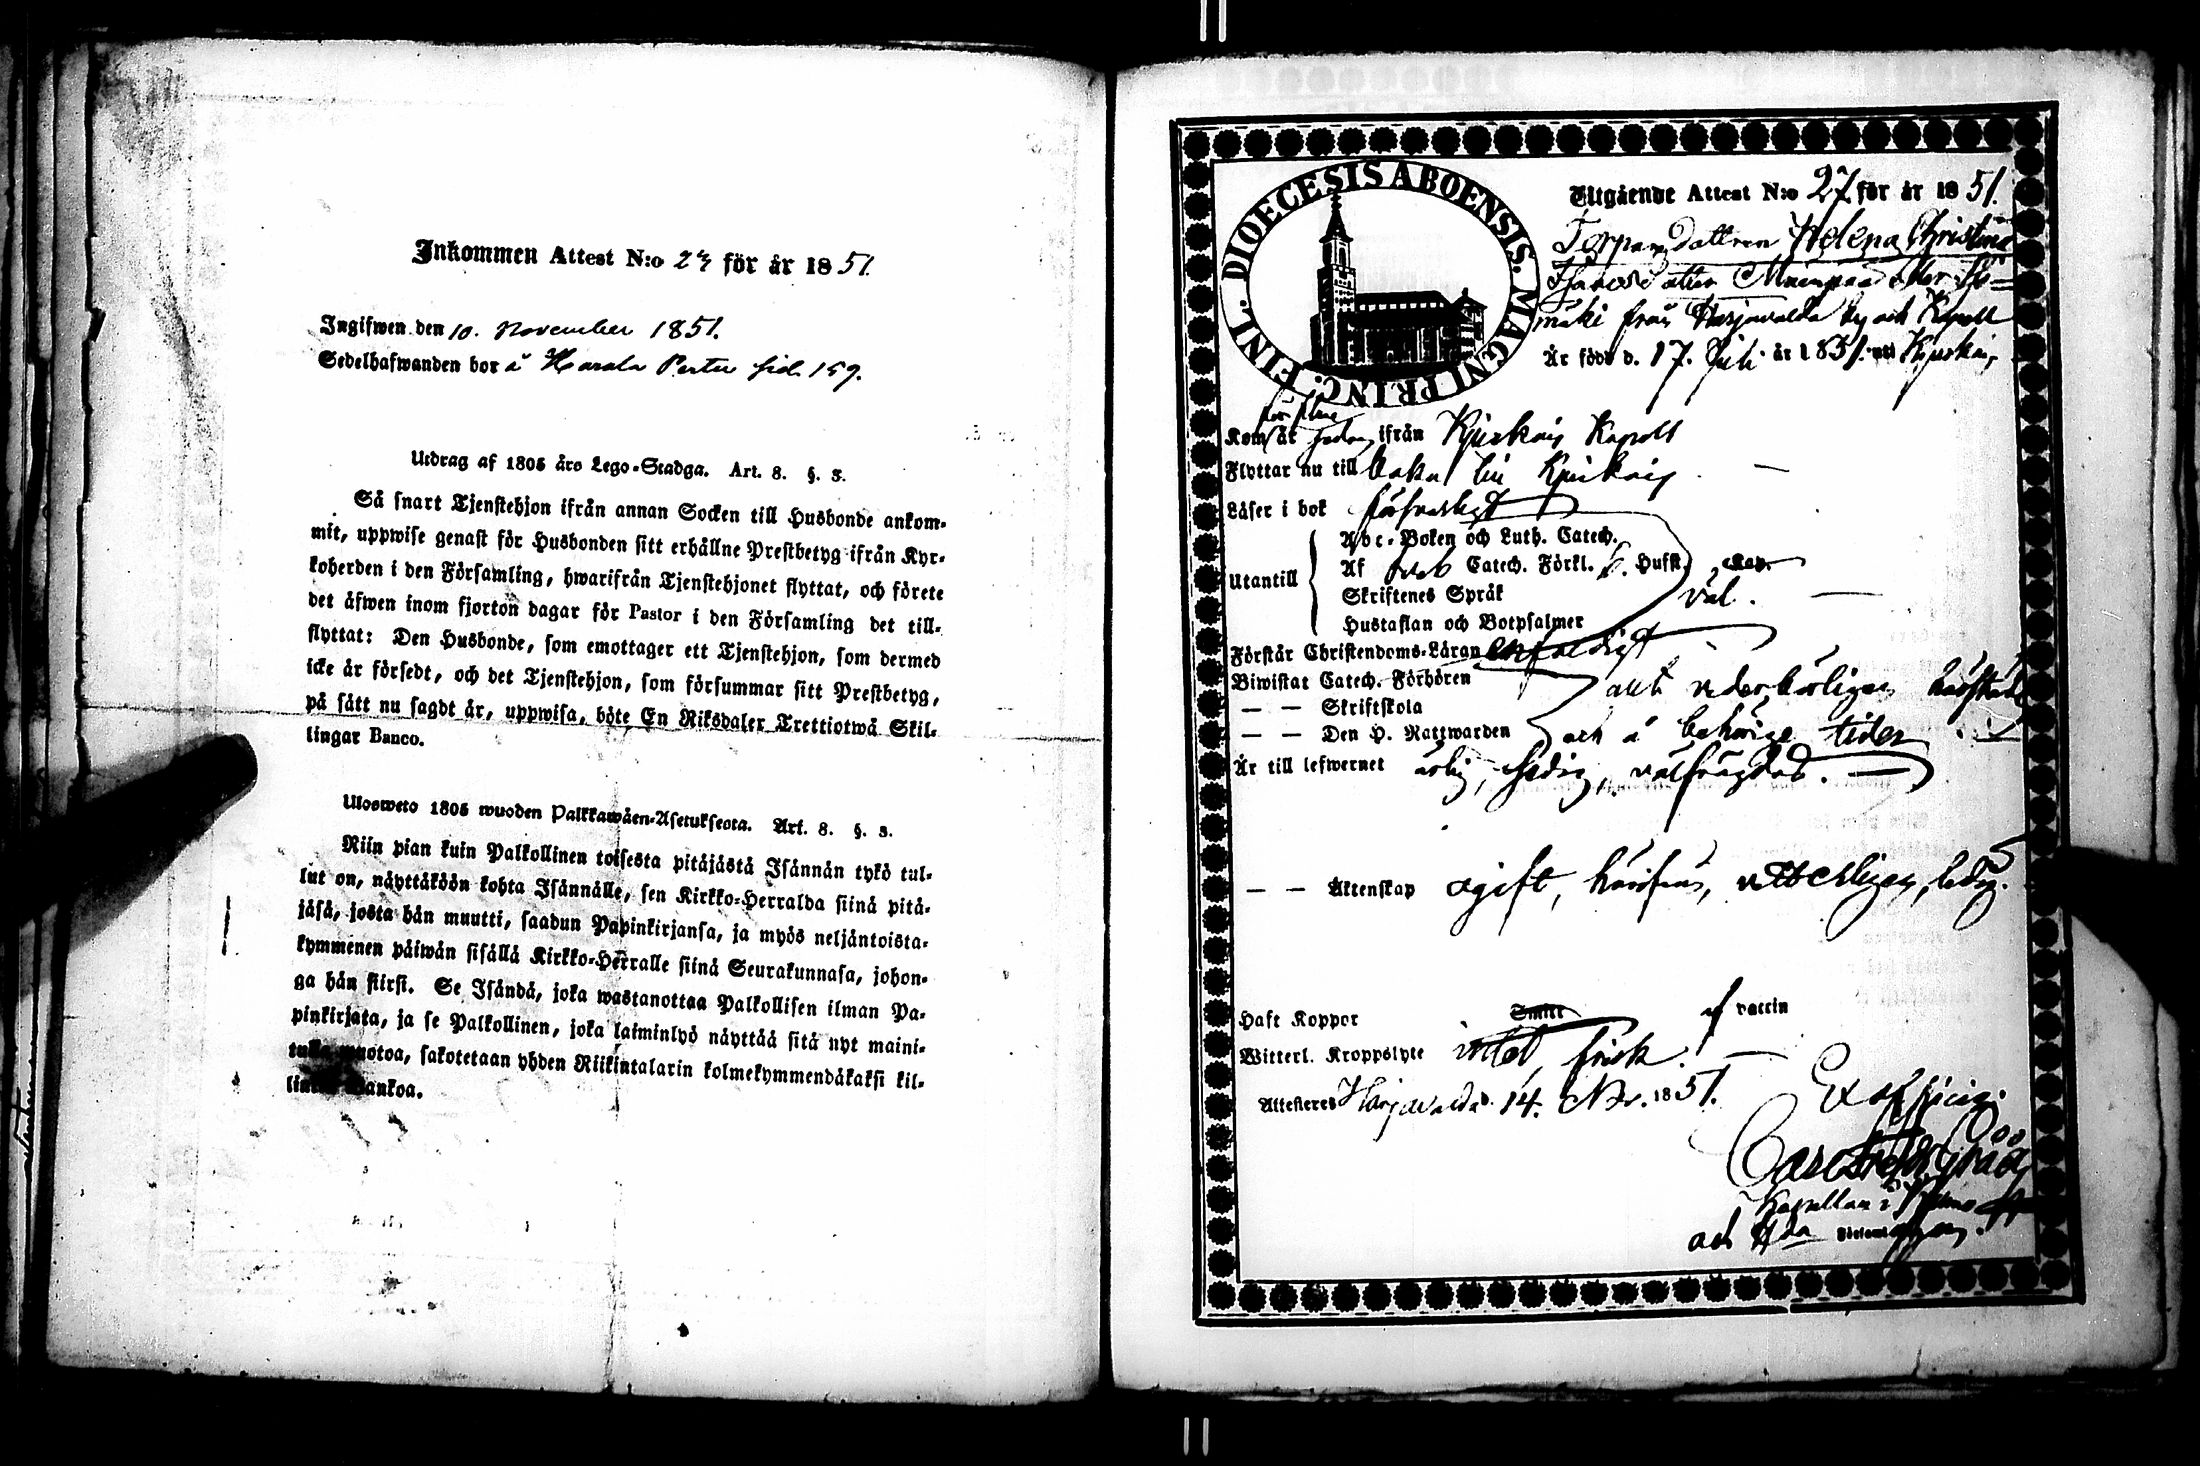 Inkommen Attest N:o 27 för år 1851.
Ingifwen den 10. November 1851.
Sedelhafwanden bor å Harola Perttu sid. 159.
Utdrag af 1805 års Lego-Stadga. Art. 8. §. 3.
Så snart Tjenstehjon ifrån annan Socken till Husbonde ankom-
mit, uppwise genast för Husbonden sitt erhållne Prestbetyg ifrån Kyr-
koherden i den Församling, hwarifrån Tjenstehjonet flyttat, och förete
det äfwen inom fjorton dagar för Pastor i den Församling det till-
flyttat: Den Husbonde, som emottager ett Tjenstehjon, som dermed
icke är försedt, och det Tjenstehjon, som försummar sitt Prestbetyg,
på sätt nu sagdt är, uppwisa, böte En Riksdaler Trettiotwå Skil-
lingar Banco.
Ulosweto 1805 wuoden Palkkawäen-Asetuksesta. Art. 8. §. 3.
Niin pian kuin Palkollinen toisesta pitäjästä Isännän tykö tul-
lut on, näyttäköön kohta Isännälle, sen Kirkko-Herralda siinä pitä-
jäsä, josta hän muutti, saadun Papinkirjansa, ja myös neljäntoista-
kymmenen päiwän sisällä Kirkko-Herralle siinä Seurakunnasa, johon-
ga hän siirsi. Se Isändä, joka wastanottaa Palkollisen ilman Pa-
pinkirjata, ja se Palkollinen, joka laiminlyö näyttää sitä nyt maini-
tulla muotoa, sakotetaan yhden Riikintalarin kolmekymmendäkaksi kil-
lingiä Bankoa.
DIOECESIS ABOENSIS. MAGNI PRINC. FINL.
Utgående Attest N:o 27 för år 1851.
Torparedottren Helena Christina
från Harjavalda by och Kapell
Är född d. 17. Juli år 1831. uti Kjukais
Kom år ifrån Kjukais Kapell
Flyttar nu till baka till Kjukais
Läser i bok försvarligt
Utantill
Abc-Boken och Luth. Catech.
Af Catech. Förkl. Husft.
Skriftenes Språk väl.
Hustaflan och Botpsalmer
Förstår Christendoms-Läran enfaldigt
Biwistat Catech. Förhören
— — Skriftskola
— — Den H. Nattwarden
allt vederbörligen
och å behörige tider
Är till lefwernet ärlig, sedig, välfrägdad.
— — Äktenskap ogift, hinderslös, ledig.
Haft Koppor Smitt af vaccin
Witterl. Kroppslyte intet, frisk.
Attesteres Harjavalda d. 14. Nbr. 1851.
Ex officio.
Kapellan i
och församlingar.